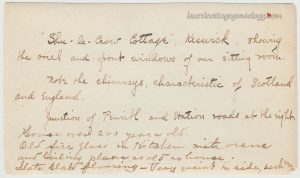 laurelcottagegenealogy.com
"Shu-le-Crow Cottage", Keswick, showing
the oriel and front windows of our sitting room.
Note the chimneys, characteristic of Scotland
and England.
Junction of Penrith and Station roads at the right.
House over 200 years old.
Old fire place in Kitchen with ovens
and as old as house.
Slate slab flooring - Very quaint inside, each